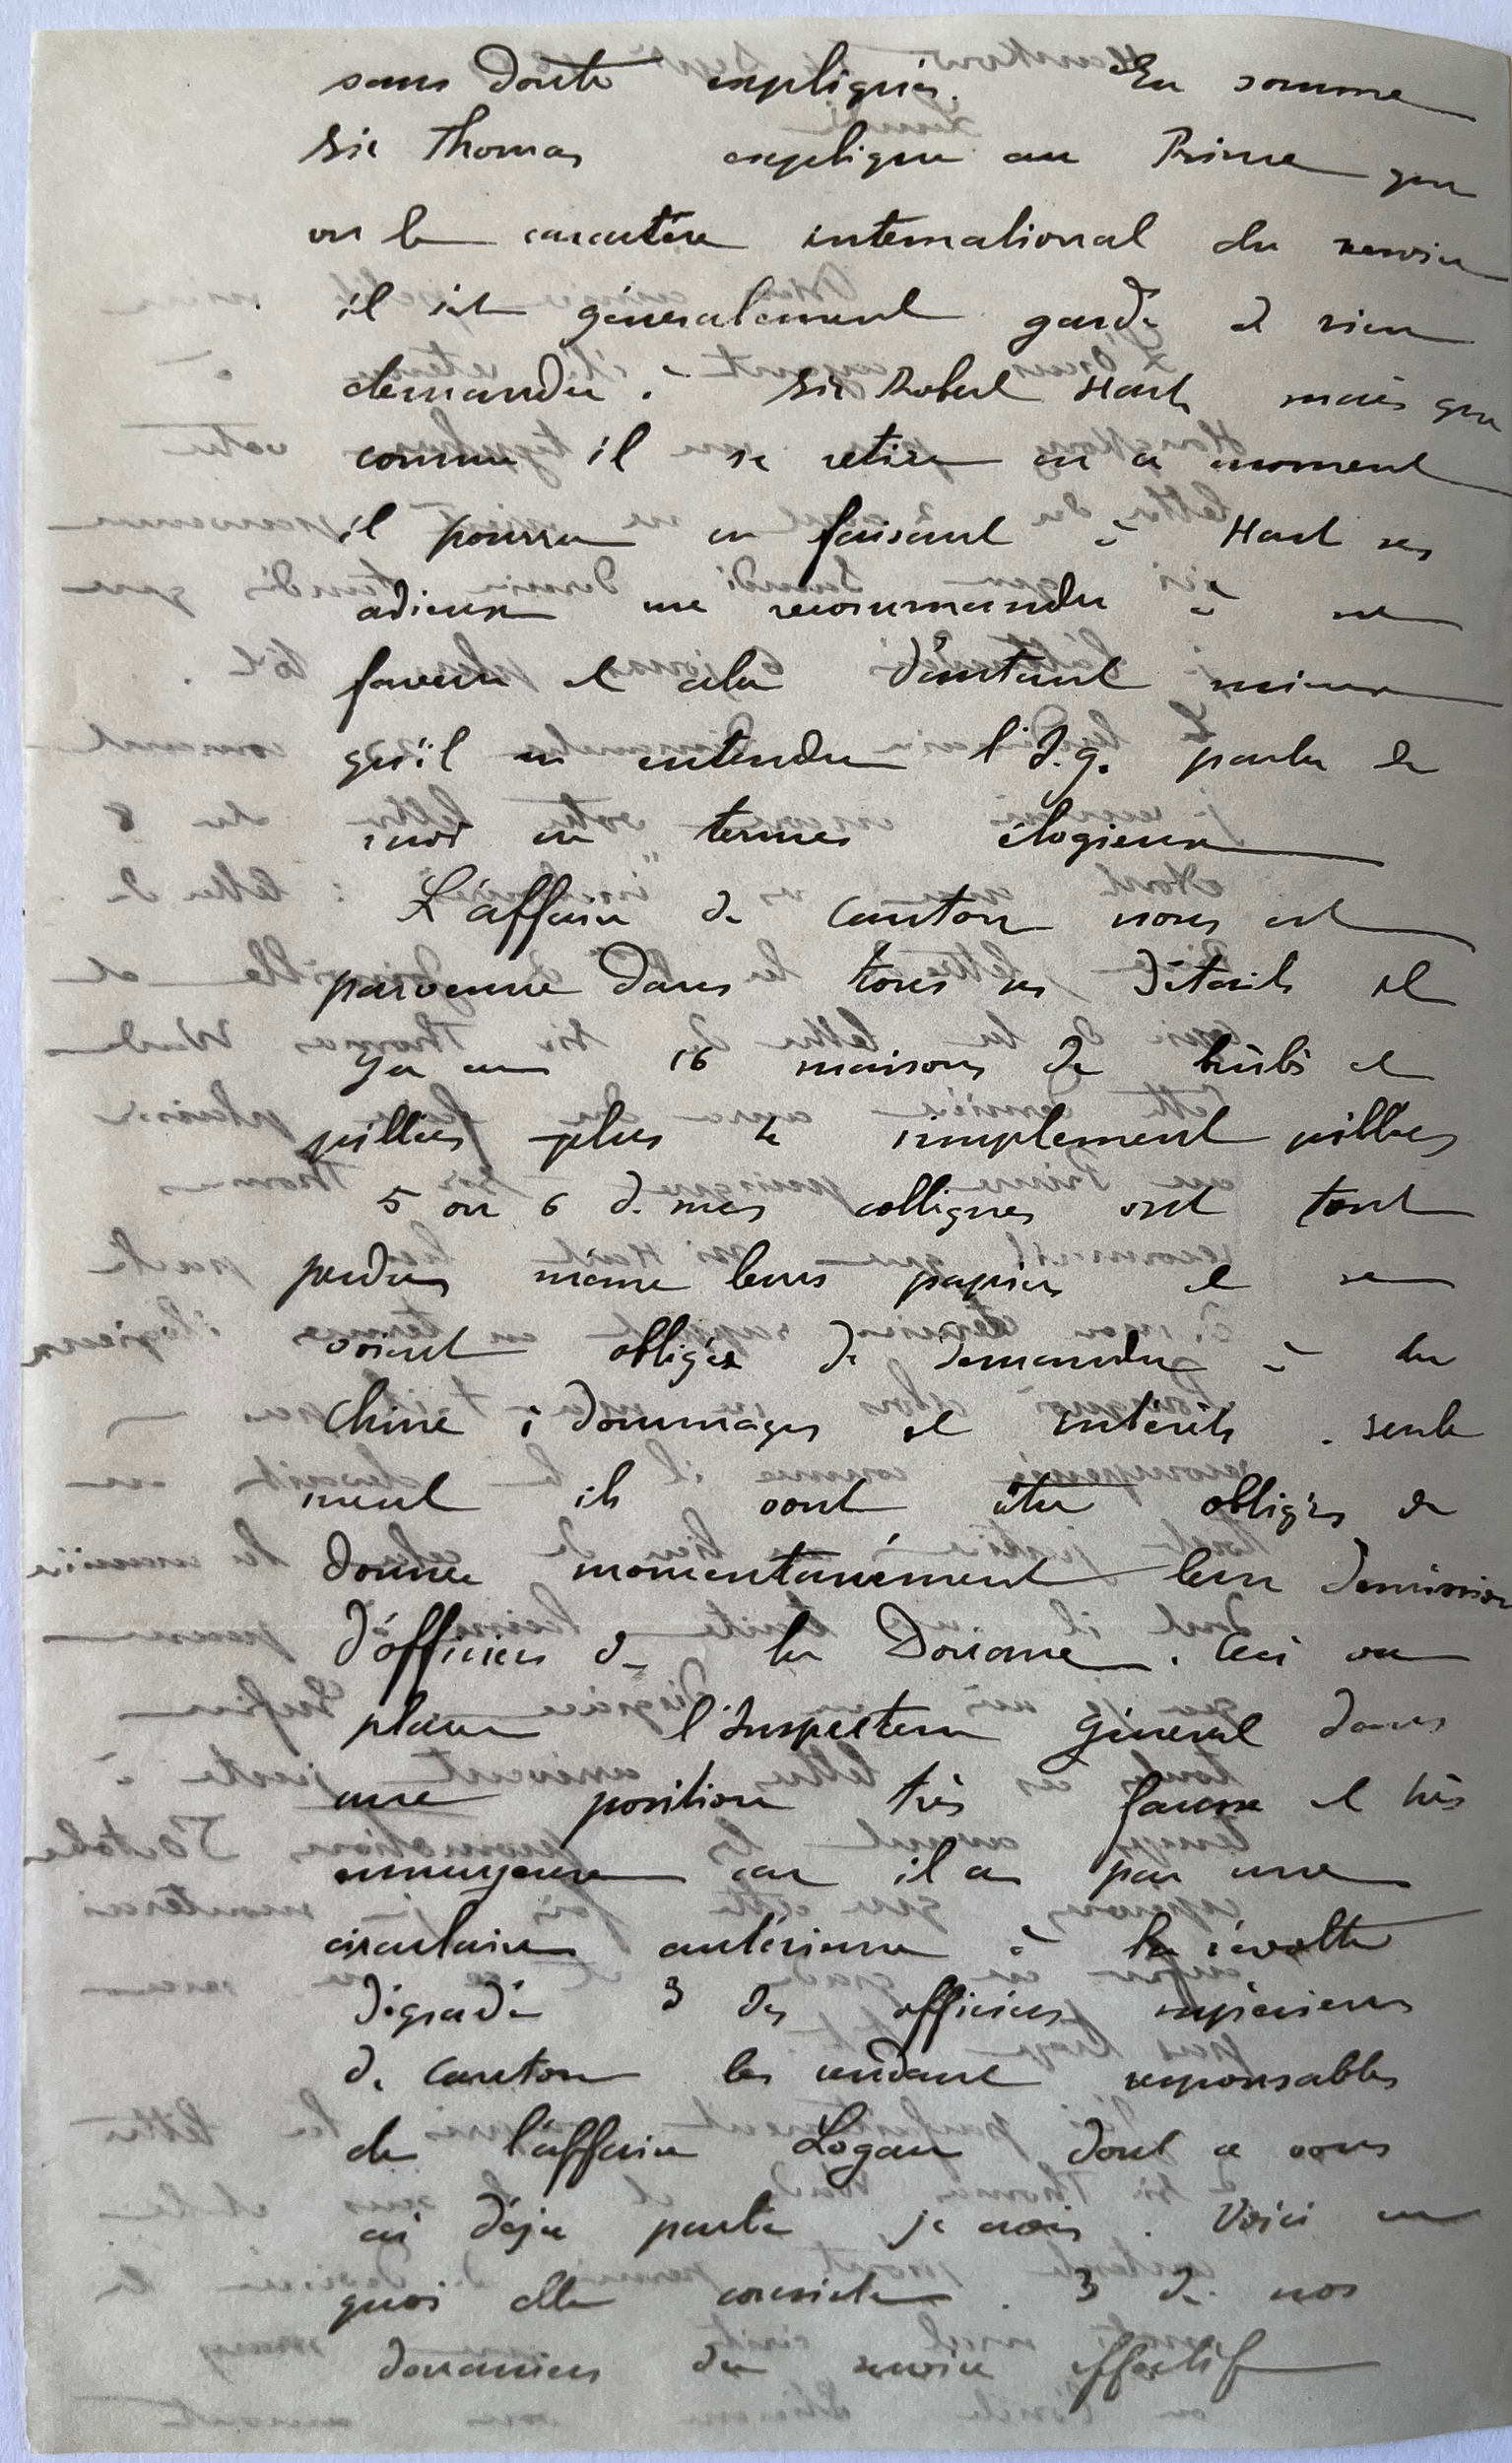 sans doute expliqués. En somme
Sir Thomas explique au Prince que
vu le caractère international du service
il s'est généralement gardé de rien
demander à Sir Robert Hart mais que
comme il se retire en ce moment
il pourra en faisant à Hart ses
adieux me recommander à sa
faveur et cela d'autant mieux
qu'il a entendu l'I.G. parler de
moi en termes élogieux
L'affaire de Canton nous est
parvenue dans tous ses détails il
y a eu 16 maisons de brûlés et
pillées plus 4 simplement pillées
5 ou 6 de mes collègues ont tout
perdus même leurs papiers et se
voient obligés de demander à la
Chine i dommages et intérêts. seule
ment ils vont être obligés de
donner momentanément leur démission
d'officiers de la Douane. Ceci va
placer l'Inspecteur Général dans
une position très fausse et très
ennuyeuse car il a par une
circulaire antérieure à la révolte
dégradé 3 des officiers supérieurs
de Canton les rendant responsables
de l'affaire Logan dont je vous
ai déjà parlé je crois. Voici en
quoi elle consiste. 3 de nos
douaniers du service effectif